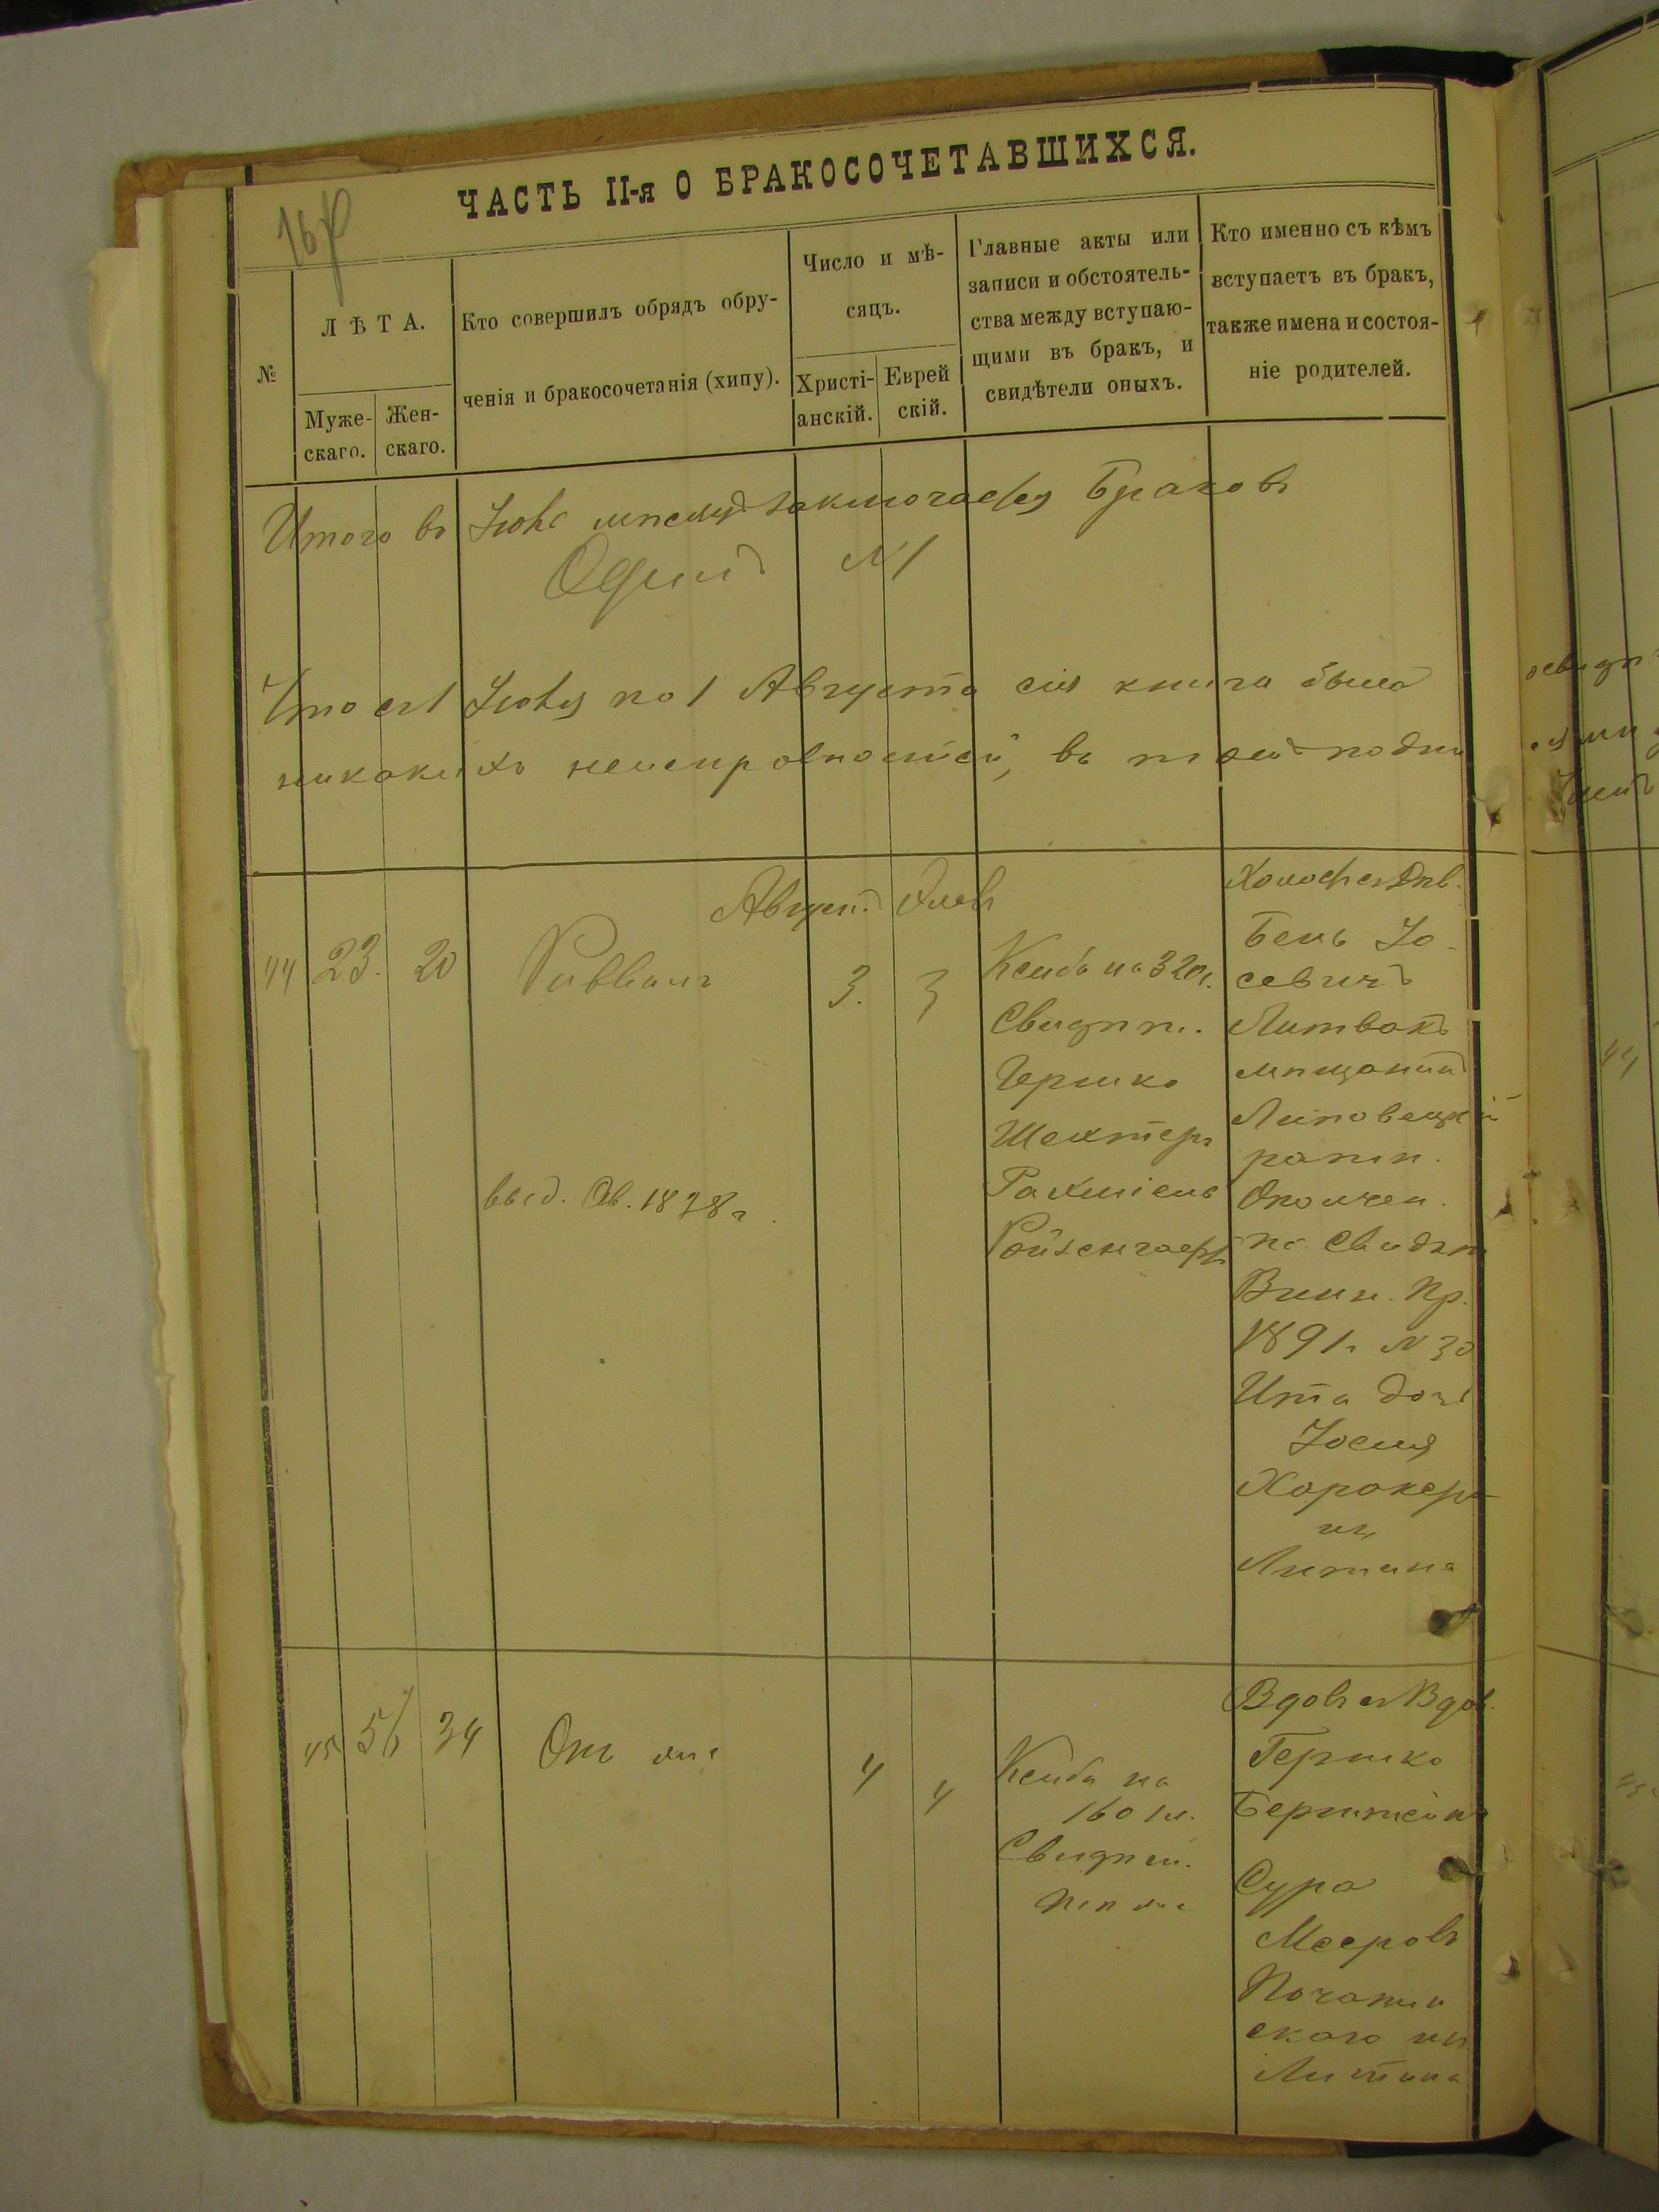 ЧАСТЬ II-я О БРАКОСОЧЕТАВШИХСЯ.
№
ЛѢТА.
Муже-
скаго.
Жен-
скаго.
Кто совершилъ обрядъ обру-
ченія и бракосочетанія (хипу).
Число и мѣ-
сяцъ.
Христі-
анскій.
Еврей
скій.
Главные акты или
записи и обстоятель-
ства между вступаю-
щими въ бракъ, и
свидѣтели оныхъ.
Кто именно съ кѣмъ
вступаетъ въ бракъ,
также имена и состоя-
ніе родителей.
Итого въ Іюлѣ заключается Браковъ
Одинъ №1
Что съ 1 Іюля по 1 Августа сія книга была
никакихъ неисправностей, въ томъ подпи
Август. Элев
44
23.
20
Раввинъ
выд. Св. 1898 г.
3.
3
Ксиба на 320 г.
Свидѣт.
Гершко
Шехтеръ
Рахміель
Холост съ Дѣв.
Бень Іо-
севичъ
Литвакъ
мѣщанинъ
Липовецкій
ратн.
Ополчен.
по Свидѣт
Винн. Пр.
1891 г. №30
Ита дочь
Іося
изъ
Литина
45
56
34
Онъ же
4
4
Ксиба на
160 зл.
Свидѣт.
Тѣ же
Вдов съ Вдов.
Гершко
Бернштейнъ
Сура
Мееровъ
скаго изъ
Литина